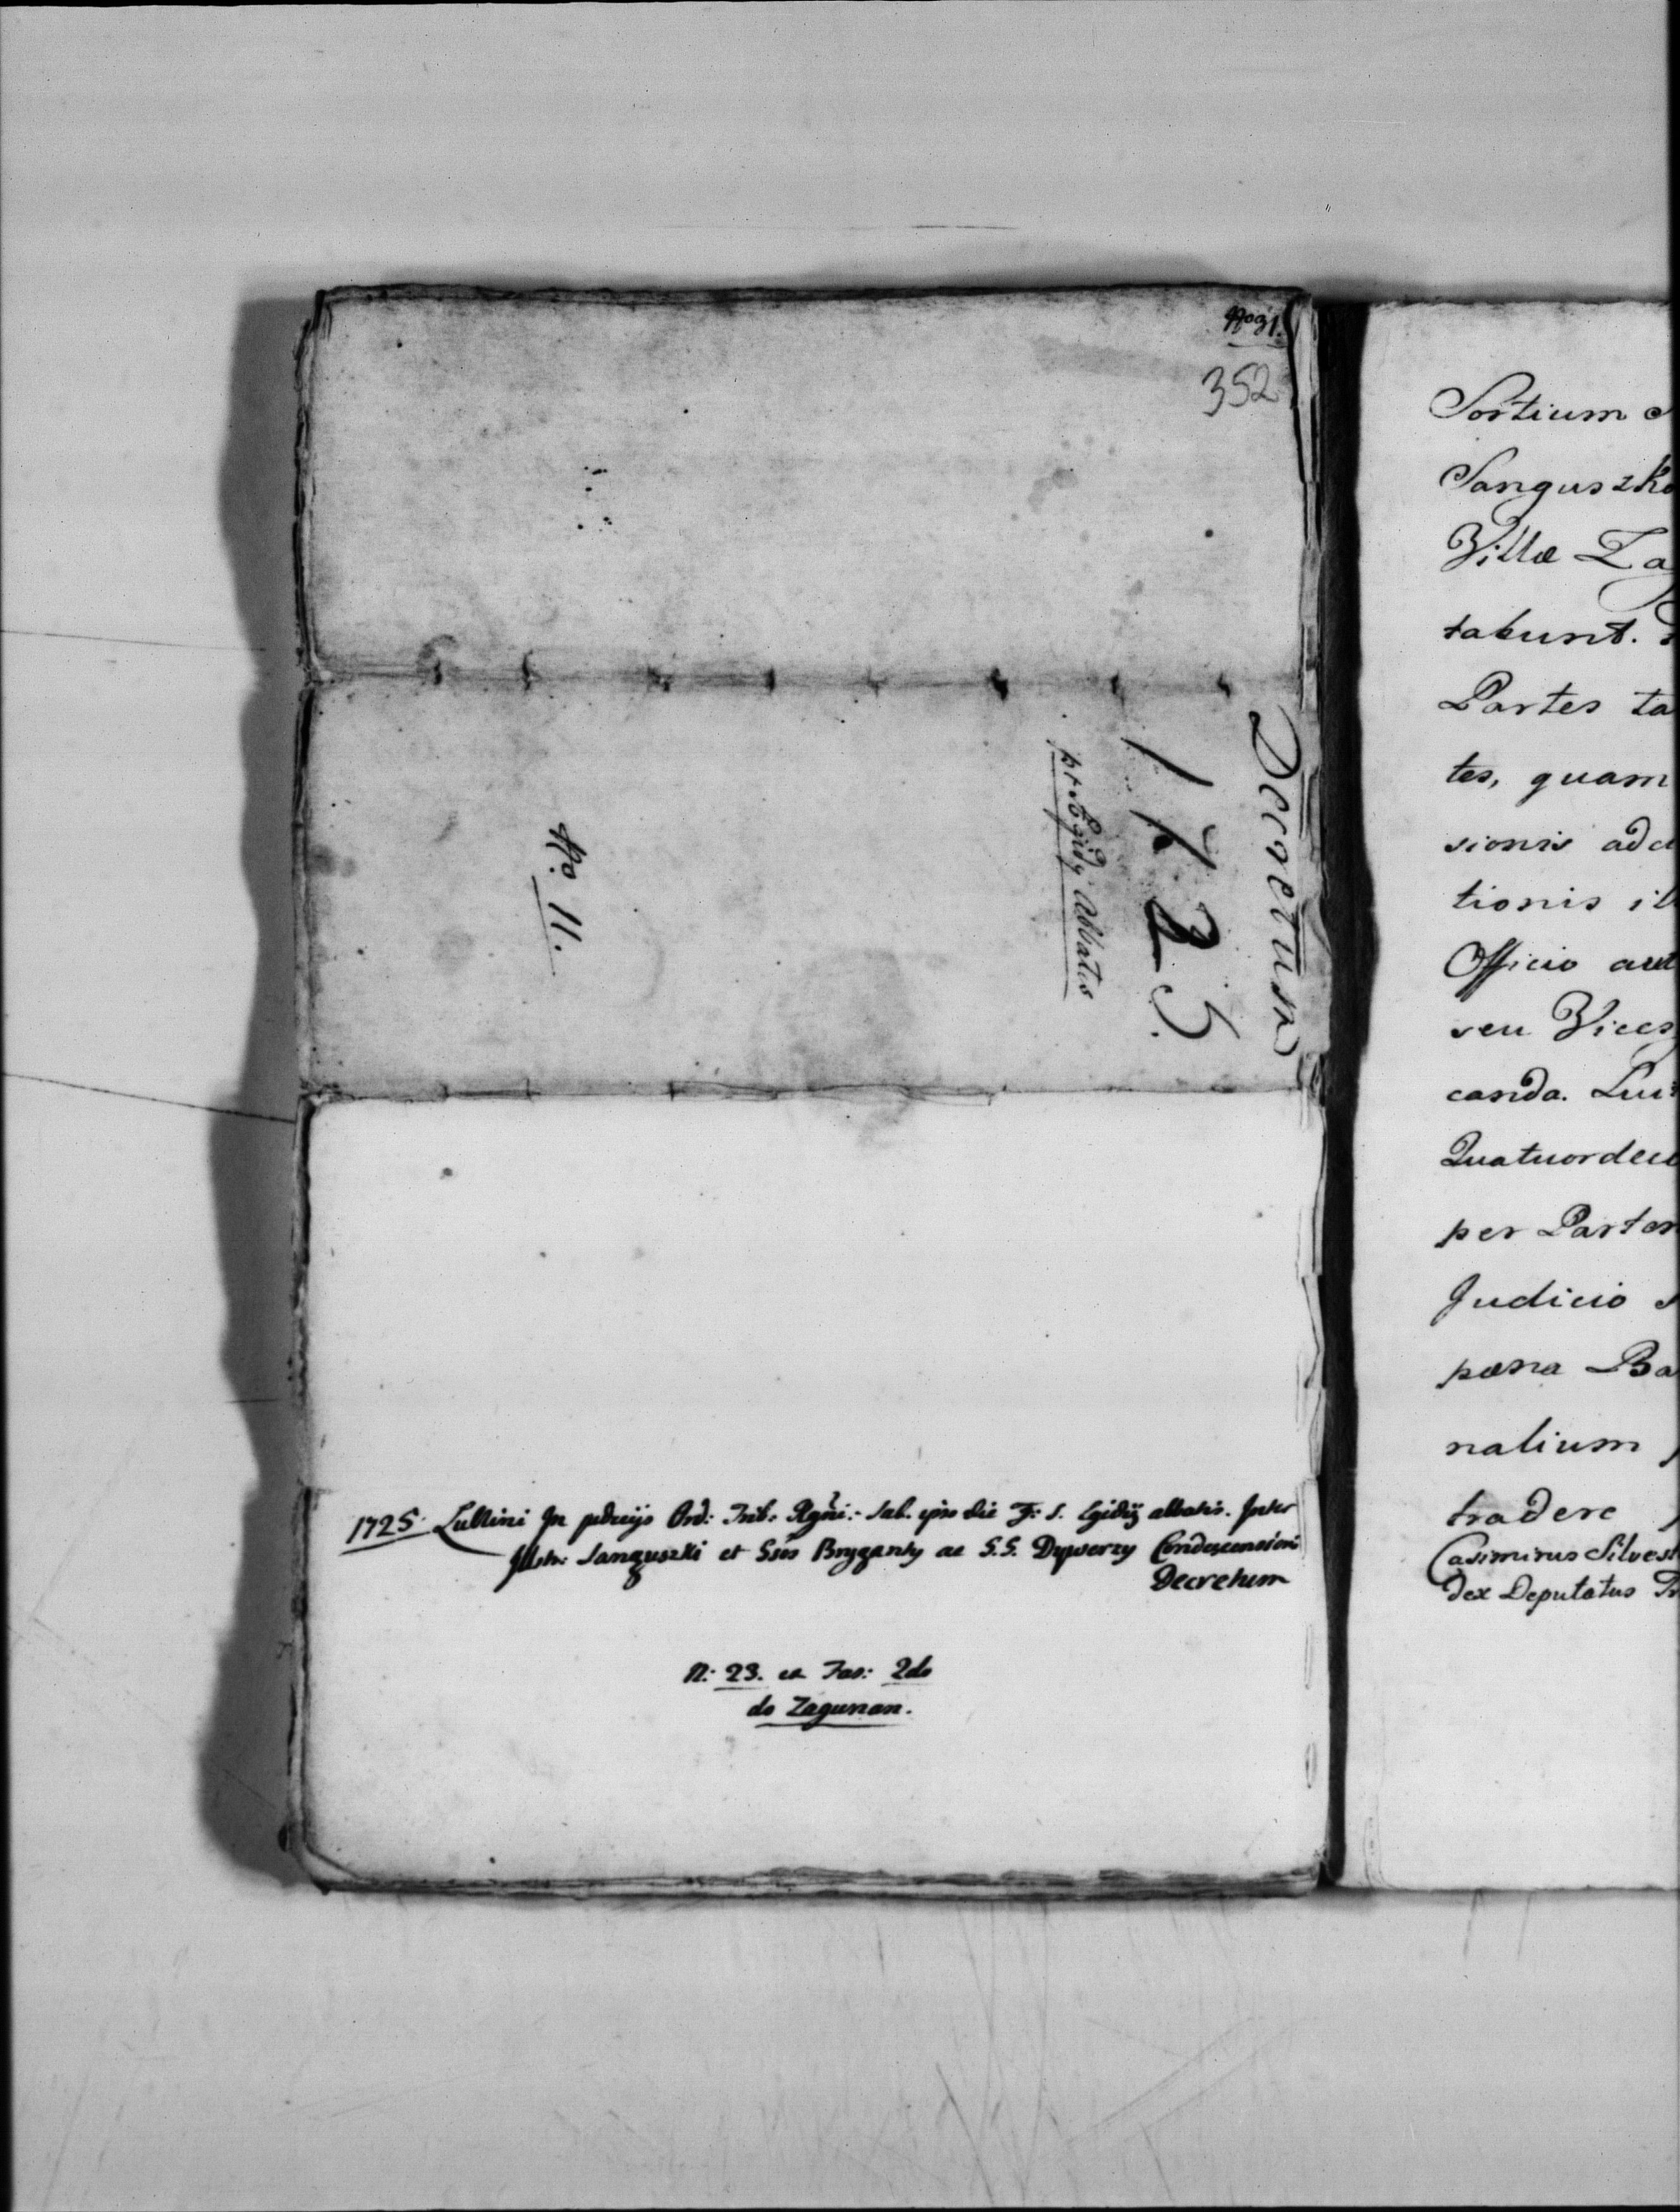 No 31.
352
Decretum
1725.
pt Egidy Abbatis
No. 11.
1725. Lublini In judicijs Ord: Trib: Regni: Sab. ipso die F: S. Egidij abbatis. Inter
Illstr: Sanguszki et Ssos Bryganty ac S.S. Dywerzy Condescensioni
Decretum
N: 23. ex Fas: 2do
do Zagunan.
Sortium
Sanguszko
Villæ Zag
tabunt.
Partes ta
tes, quam
sionis ad
tionis il
Officio aut
seu Vices
canda. Lui
Quatuordeci
per Parter
Judicio
pæna Ba
nalium
tradere
Casimirus Silvest
dex Deputatus Tr